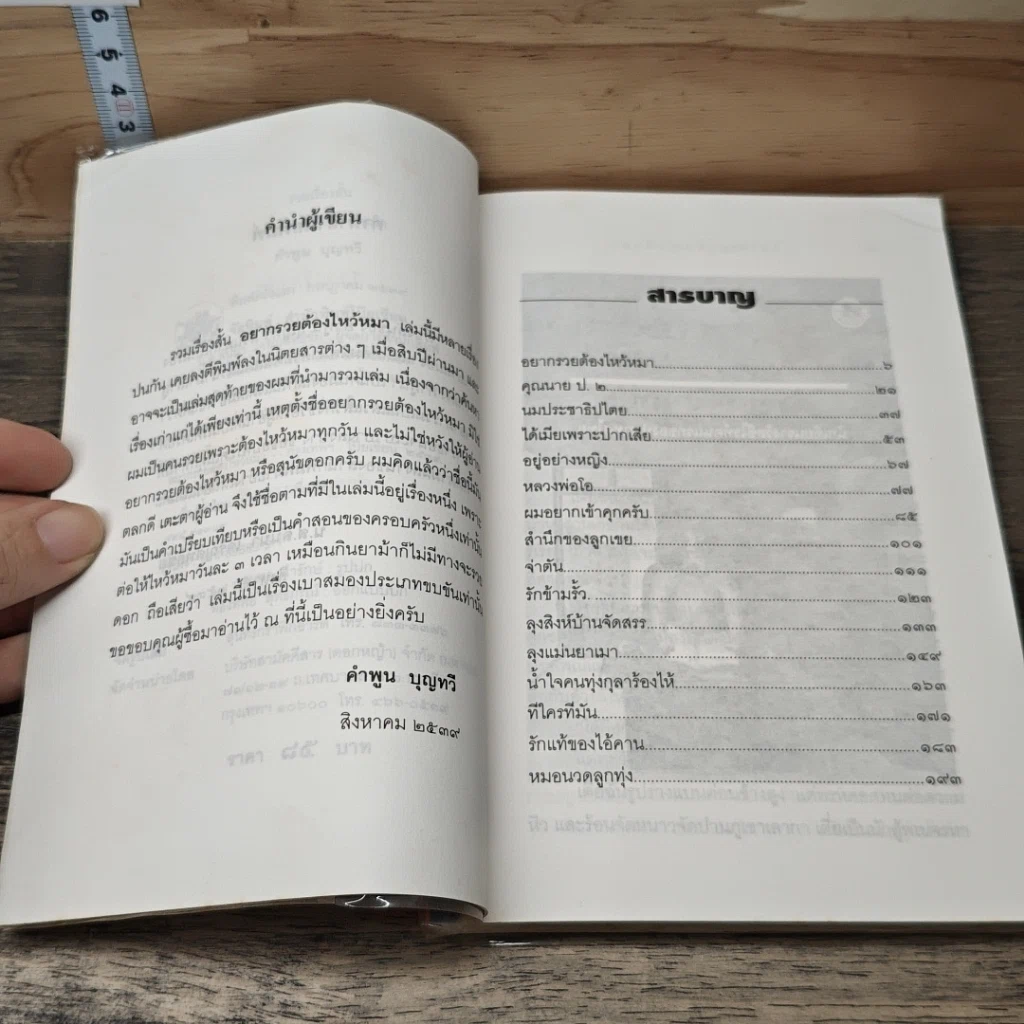 6
5
4
3
คำนำผู้เขียน
รวมเรื่องสั้น อยากรวยต้องไหว้หมา เล่มนี้มีหลาย
ปนกัน เคยลงตีพิมพ์ลงในนิตยสารต่าง ๆ เมื่อสิบปีผ่านมา และ
อาจจะเป็นเล่มสุดท้ายของผมที่นำมารวมเล่ม เนื่องจากว่า
เรื่องเก่าแก่ได้เพียงเท่านี้ เหตุตั้งชื่ออยากรวยต้องไหว้หมา
ผมเป็นคนรวยเพราะต้องไหว้หมาทุกวัน และไม่ใช่หวังให้ผู้อ่าน
อยากรวยต้องไหว้หมา หรือสุนัขดอกครับ ผมคิดแล้วว่าชื่อนี้มัน
ตลกดี เตะตาผู้อ่าน จึงใช้ชื่อตามที่มีในเล่มนี้อยู่เรื่องหนึ่ง เพราะ
มันเป็นคำเปรียบเทียบหรือเป็นคำสอนของครอบครัวหนึ่งเท่านั้น
ต่อให้ไหว้หมาวันละ ๓ เวลา เหมือนกินยาม้าก็ไม่มีทางจะรวย
ดอก ถือเสียว่า เล่มนี้เป็นเรื่องเบาสมองประเภทขบขันเท่านั้น
ขอขอบคุณผู้ซื้อมาอ่านไว้ ณ ที่นี้เป็นอย่างยิ่งครับ
คำพูน บุญทวี
สิงหาคม ๒๕๓๙
สารบาญ
อยากรวยต้องไหว้หมา ๖
คุณนาย ป. ๒ ๒๑
นมประชาธิปไตย ๓๗
ได้เมียเพราะปากเสีย ๕๓
อยู่อย่างหญิง ๖๗
หลวงพ่อโอ ๗๗
ผมอยากเข้าคุกครับ ๘๕
สำนึกของลูกเขย ๑๐๑
จ่าตัน ๑๑๑
รักข้ามรั้ว. ๑๒๓
ลุงสิงห์บ้านจัดสรร ๑๓๓
ลุงแม่นยาเมา ๑๔๙
น้ำใจคนทุ่งกุลาร้องไห้ ๑๖๓
ทีใครทีมัน ๑๗๑
รักแท้ของไอ้คาน ๑๘๓
หมอนวดลูกทุ่ง ๑๙๓